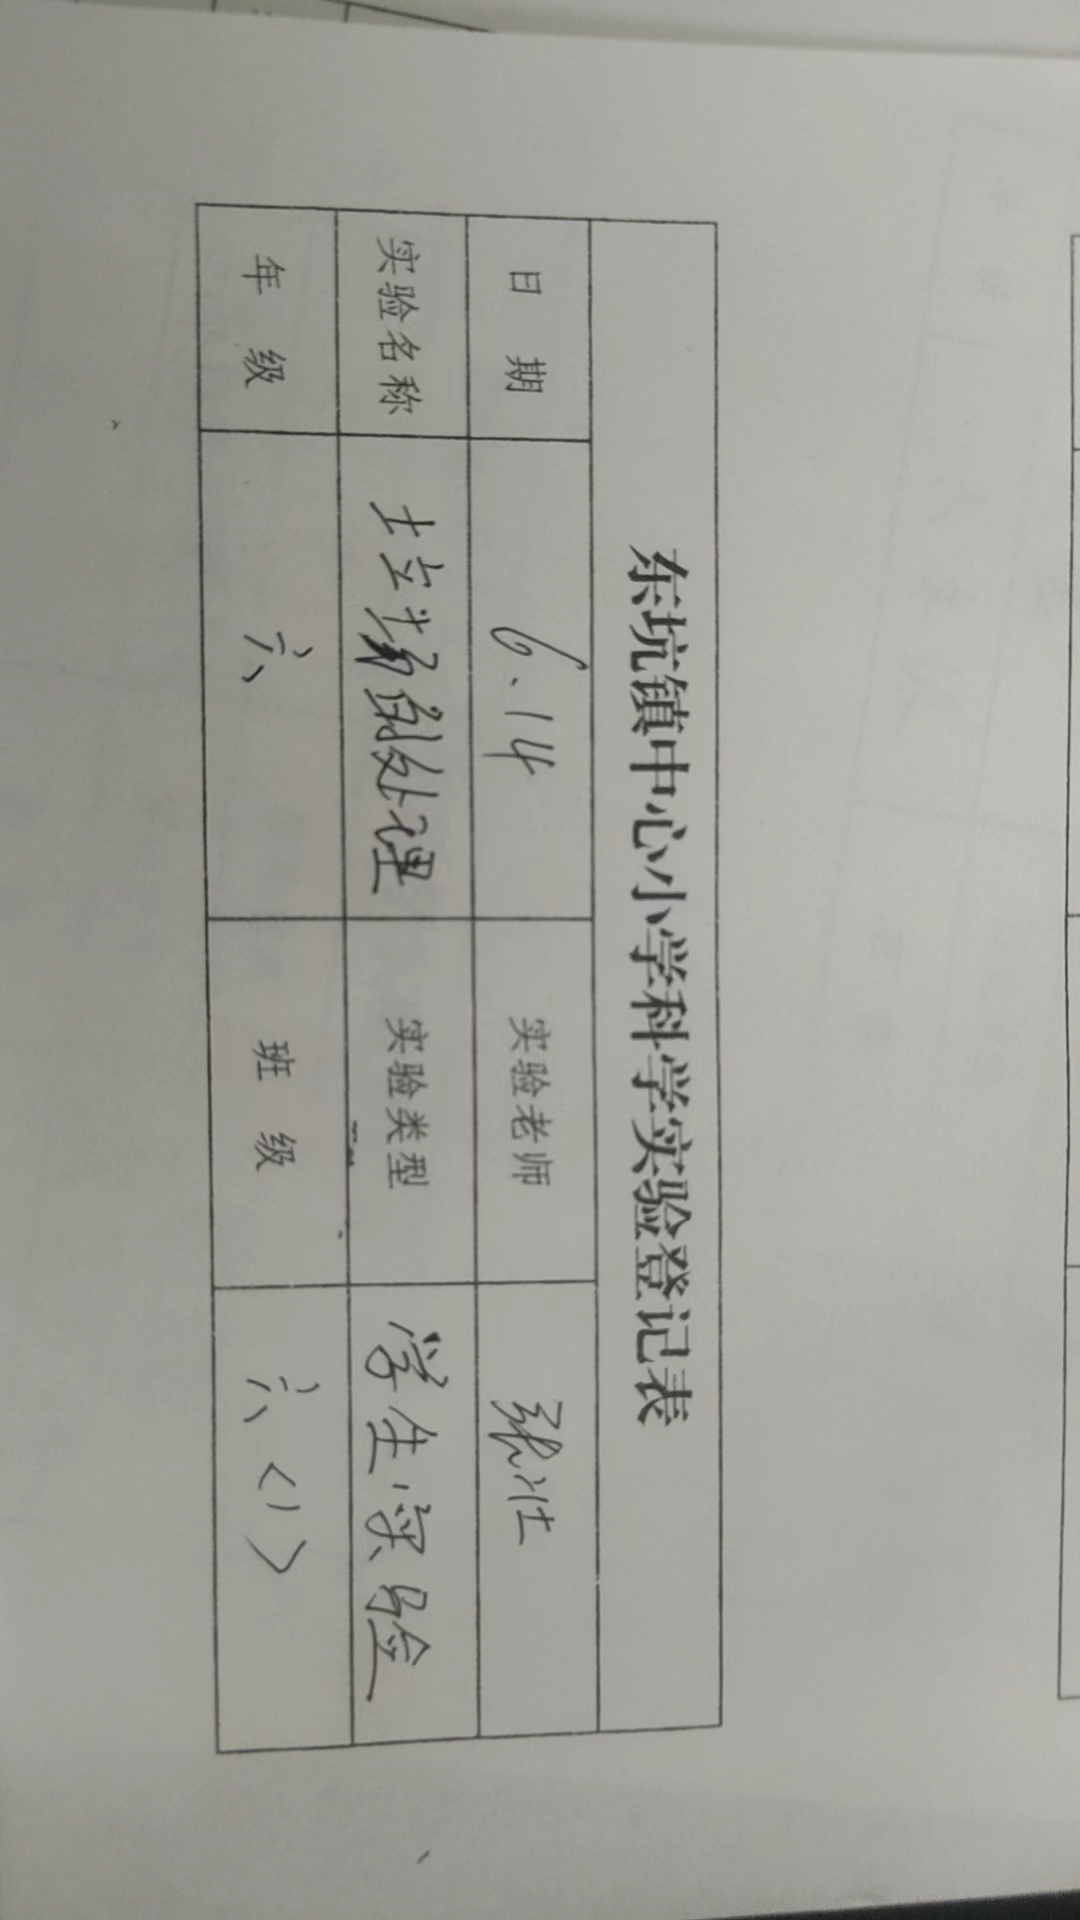 东坑镇中心小学科学实验登记表
日 期 6.14 实验老师 张壮
实验名称 垃圾的处理 实验类型 学生实验
年 级 六 班 级 六<1>